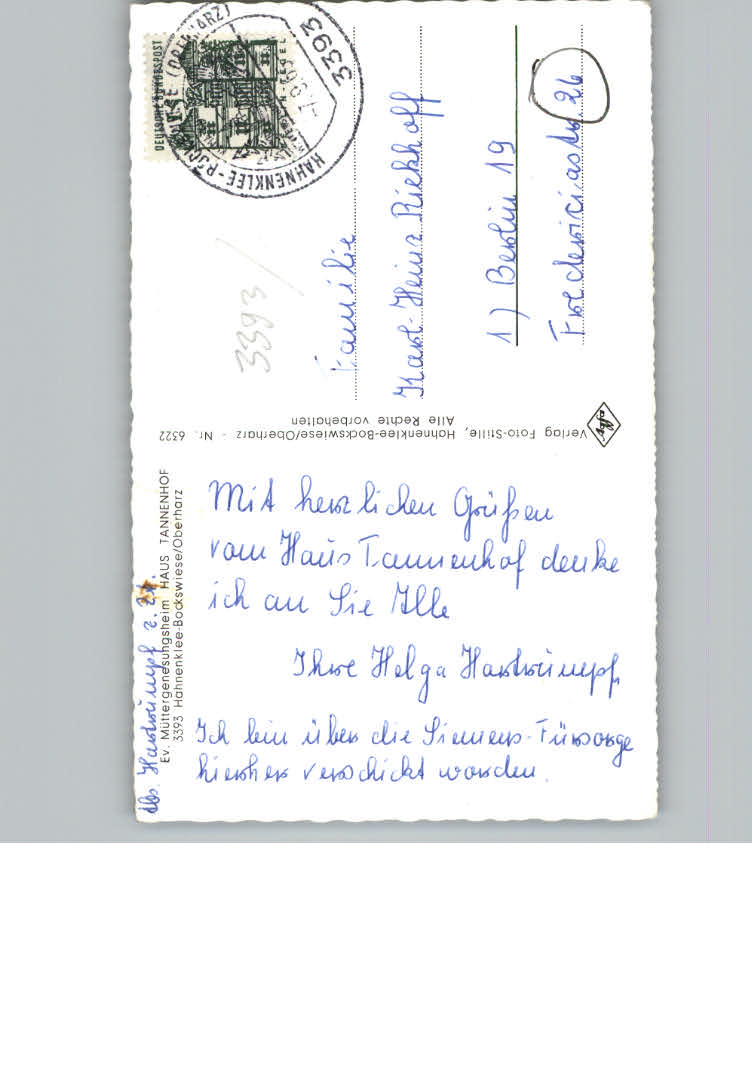 Abs. Hartrumpf z. Zt.
Ev. Müttergenesungsheim HAUS TANNENHOF
3393 Hahnenklee-Bockswiese/Oberharz
Mit herzlichen Grüßen
vom Haus Tannenhof denke
ich an Sie Alle
Ihre Helga Hartrumpf
Ich bin über die Siemens-Fürsorge
hierher verschickt worden.
Verlag Foto-Stille, Hahnenklee-Bockswiese/Oberharz - Nr. 6322
Alle Rechte vorbehalten
Agfa
DEUTSCHE BUNDESPOST
3393
HAHNENKLEE-BOCKSWIESE (OBERHARZ)
3393
Familie
Karl-Heinz Riekhoff
1) Berlin 19
Fredericiastr. 26